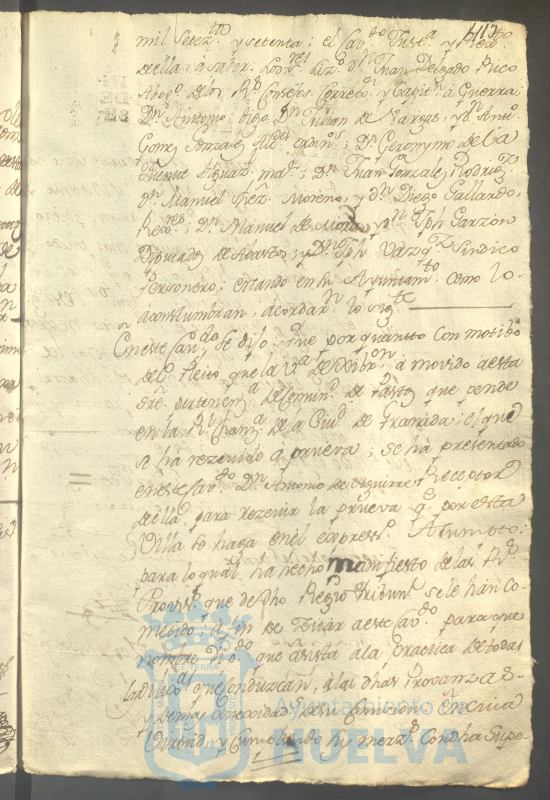 417
mil setez.tos y setenta; el Cav.do Just.a y Rex.to
de ella, a saver, los s.res liz.do d.n Juan Delgado Rico
Abog.do de los R.s Consejos Correx.or y Capit.n a Guerra;
D.n Antonio D.n Julian de Vargas, y d.n Ant.o
Gomez Gonzalez Alc.des ordin.s; D.n Geronymo de la
Fuente Alguaz.l ma.or; D.n Juan Gonzalez Rodrig.z
d.n Manuel Moreno, y d.n Diego Gallardo,
Rex.res; D.n Manuel de y d.n Jph Garzon
Diputados de Abastos, y D.n Jph Vazq.z Sindico
Personero; estando en su Ayuntam.to como lo
acostumbran, acordar.n lo sig.te
En este Cav.do se dijo: Que por quantto con motibo
del Pleito que la V.a de Xibr.on a movido a esta
sre. pertenen.a de Comun.d de Pastos que pende
en la R.l Chanz.a de la Ciu.d de Granada; el que
se ha rezevido a prueva; se ha presentado
en este Cav.do D.n Antonio de Yzquierre Receptor
de ella para rezevir la prueva q.e por esta
Villa se haga en el expres.do Asumpto;
para lo qual ha hecho manifiesto de las R.s
Proviss.s que de dho Regio Tribun.l se le han co-
metido; a fin de Zitar a este Cav.do para que
nombre Dip.do que asista a la practica de todas
las dilix.as que Conduzcan, a las dhas Provanzas
y demas anecsidades a su comision; En cuia
Virtud, y Cumpliendo sus merz.s Con dha Supe-
Ayuntamiento de
HUELVA